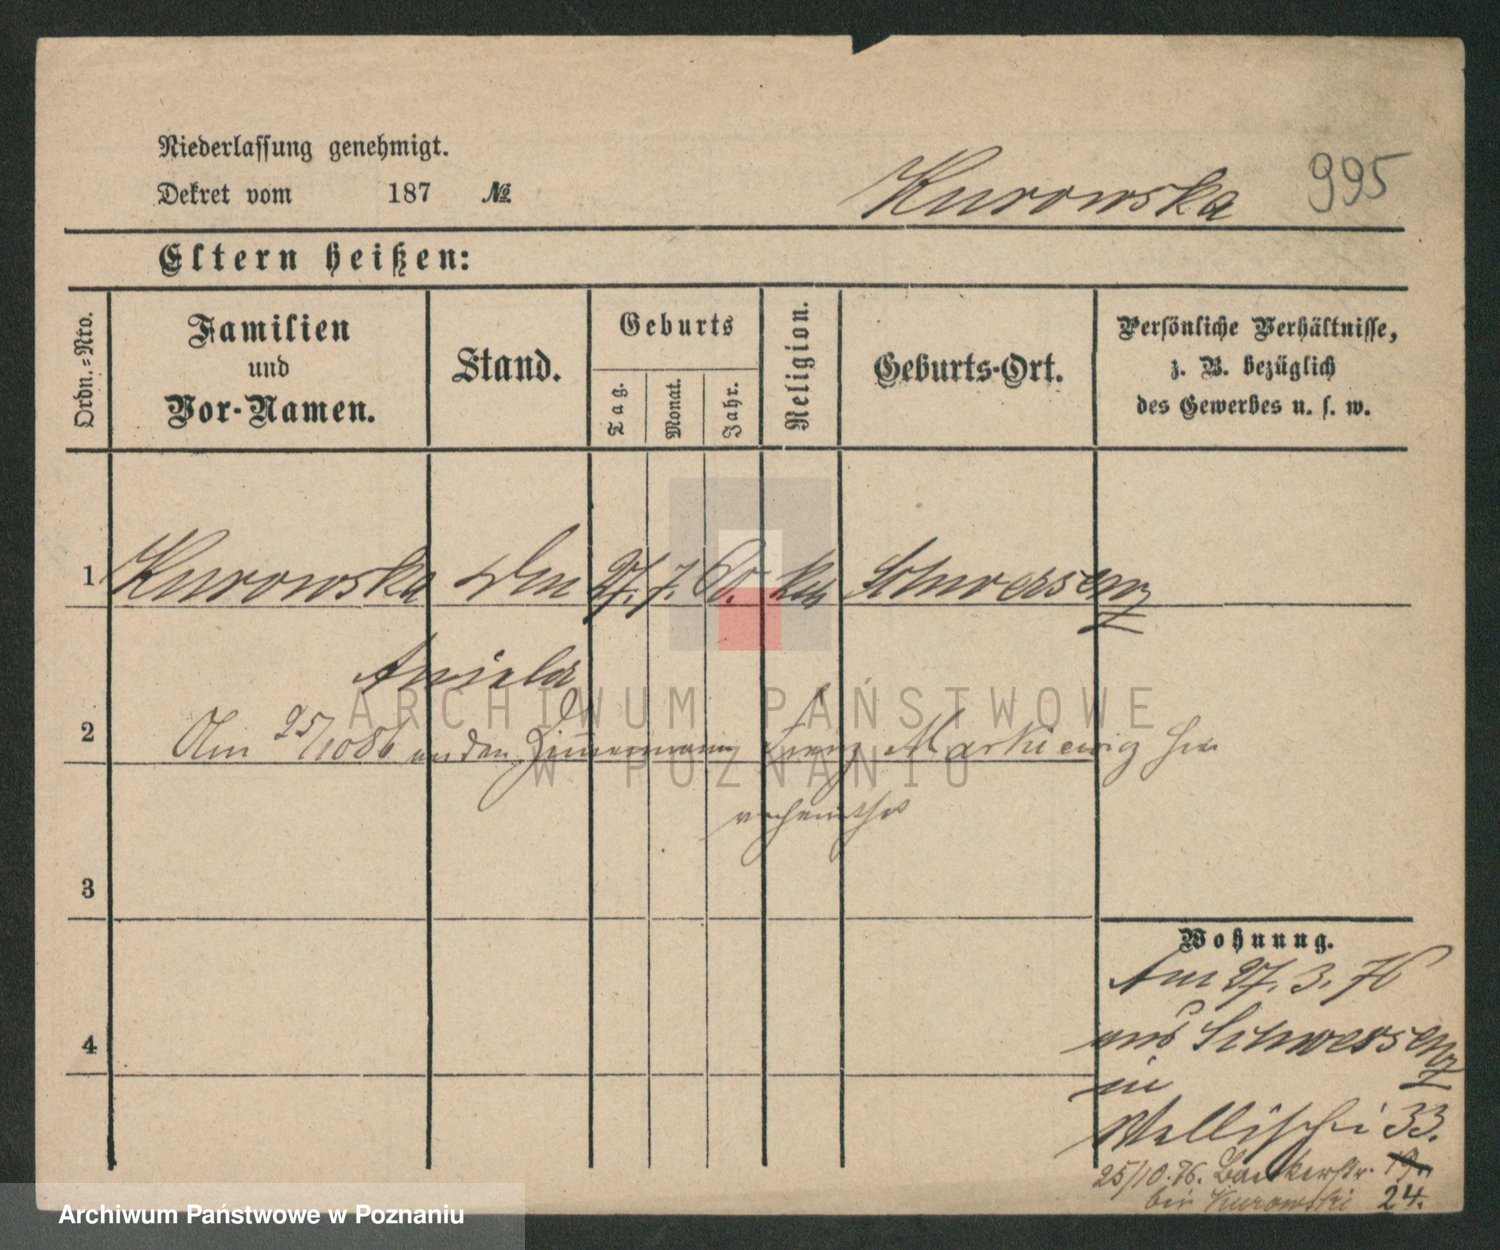 Niederlassung genehmigt.
Dekret vom 187 №
Kurowska 995
Eltern heißen:
Ordn.=Nro.
Familien
und
Vor-Namen.
Stand.
Geburts
Tag.
Monat.
Jahr.
Religion.
Geburts-Ort.
Persönliche Verhältnisse,
z. B. bezüglich
des Gewerbes u. s. w.
1 Kurowska 27. 7. 60. kath Schwersenz
Aniela
2 Am 25/10 86 an den Zimmermann Franz Markiewicz hier
verheirathet
3
Wohnung.
Am 27. 3. 76
aus Schwersenz
in
4
Wallischei 33.
25/10. 76. Bäckerstr. 19.
bei Kurowski 24.
ARCHIWUM PAŃSTWOWE
W POZNANIU
Archiwum Państwowe w Poznaniu